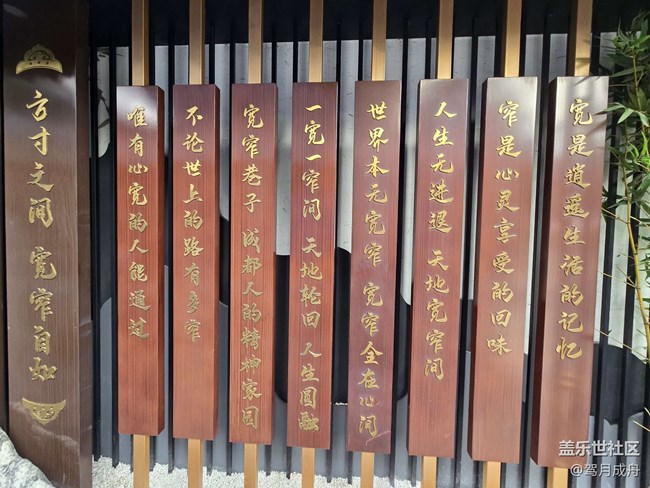 宽是逍遥生活的记忆
窄是心灵享受的回味
人生无进退 天地宽窄间
世界本无宽窄 宽窄全在心间
一宽一窄间 天地轮回 人生圆融
宽窄巷子 成都人的精神家园
不论世上的路有多窄
唯有心宽的人能通过
方寸之间 宽窄自如
盖乐世社区
@驾月成舟